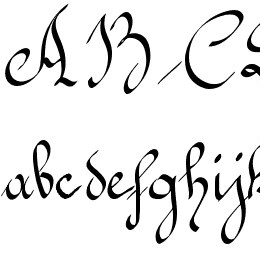 A B C
abcdefghij